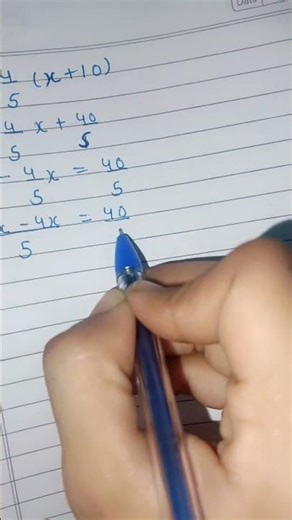 4/5 (x+10)
4/5 x + 40/5
- 4x/5 = 40/5
x - 4x/5 = 40